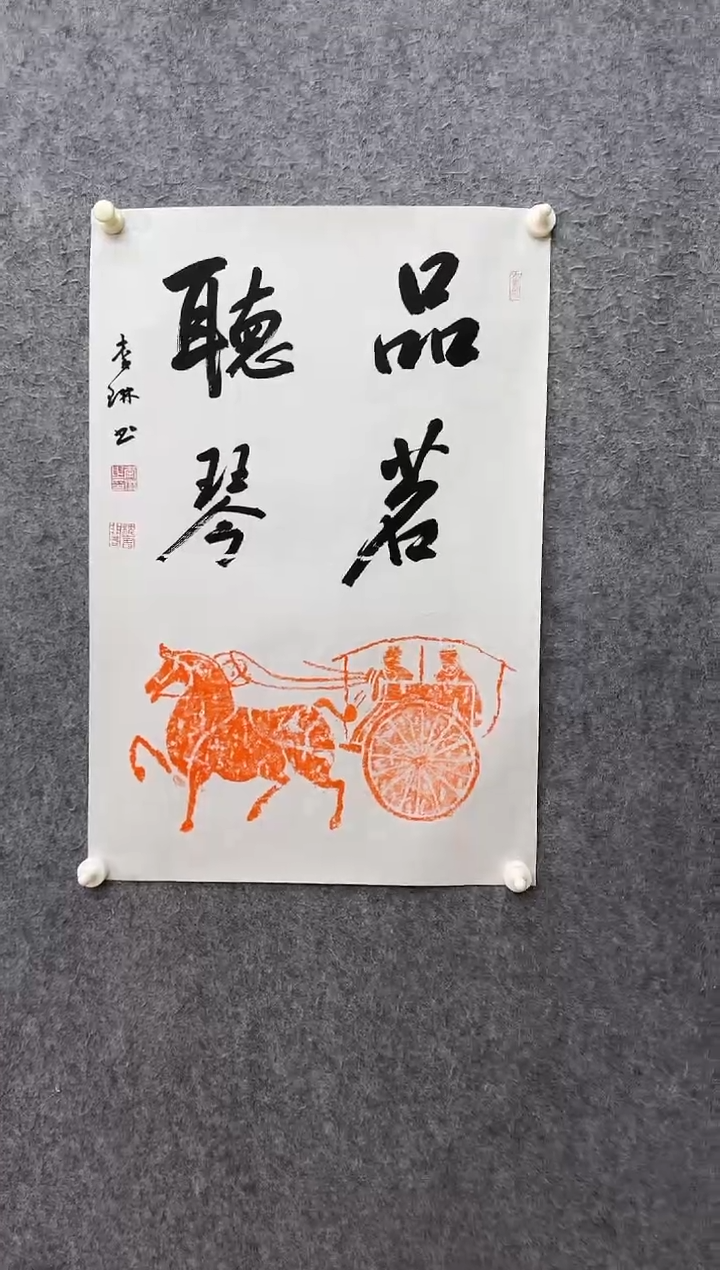 品茗
聽琴
李琳书